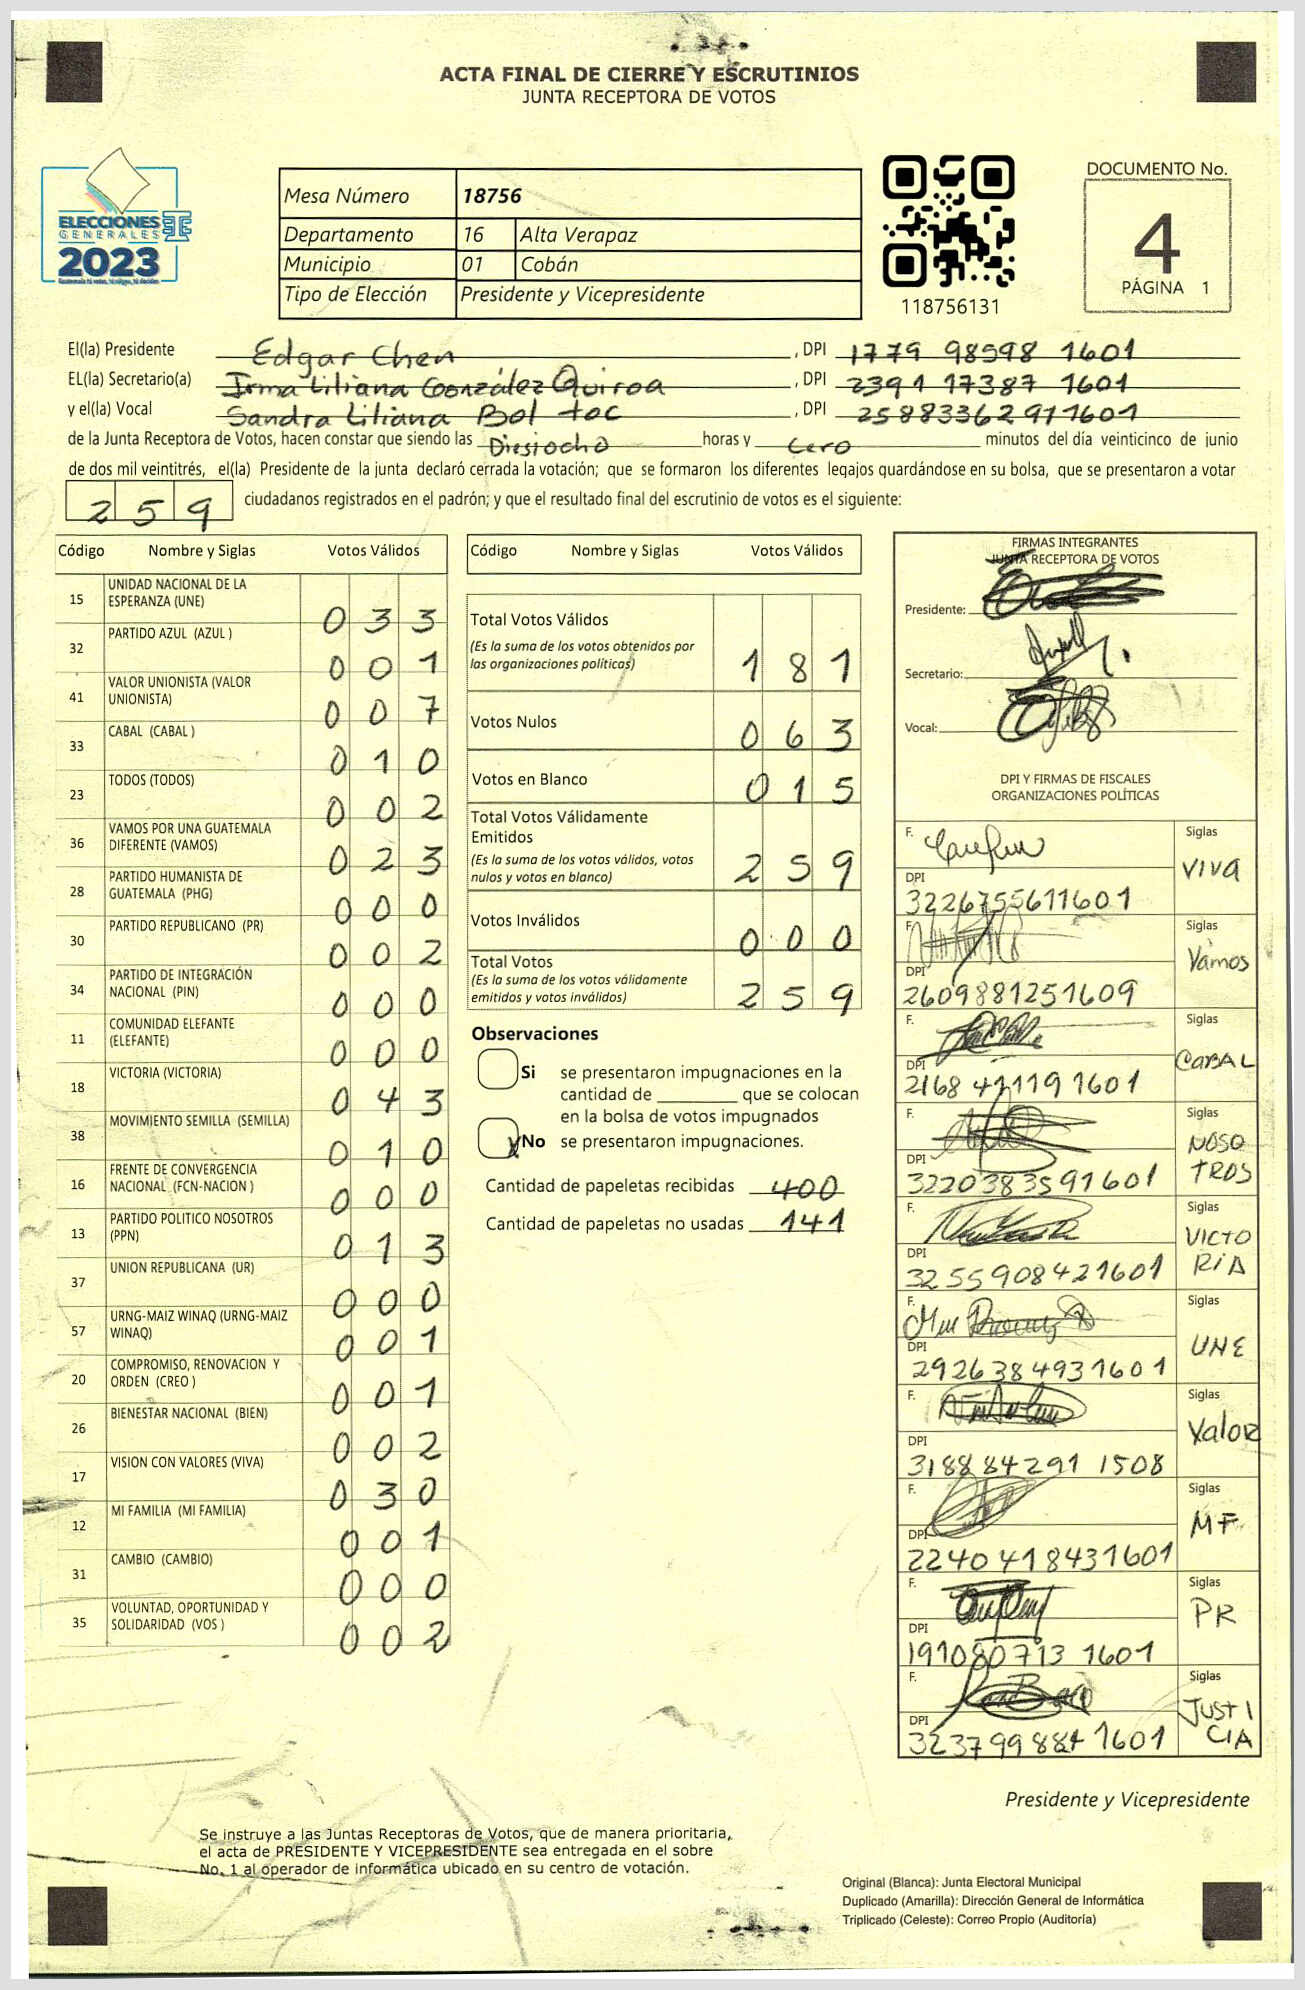 ACTA FINAL DE CIERRE Y ESCRUTINIOS
JUNTA RECEPTORA DE VOTOS
ELECCIONES
GENERALES
2023
Mesa Número 18756
Departamento 16 Alta Verapaz
Municipio 01 Cobán
Tipo de Elección Presidente y Vicepresidente
118756131
DOCUMENTO No.
4
PÁGINA 1
El(la) Presidente Edgar Chen , DPI 1779 98598 1601
EL(la) Secretario(a) Irma Liliana González Quiroa , DPI 2391 17387 1601
y el(la) Vocal Sandra Liliana Bol toc , DPI 2588336291 1601
de la Junta Receptora de Votos, hacen constar que siendo las Diesiocho horas y cero minutos del día veinticinco de junio
de dos mil veintitrés, el(la) Presidente de la junta declaró cerrada la votación; que se formaron los diferentes legajos quardándose en su bolsa, que se presentaron a votar
259 ciudadanos registrados en el padrón; y que el resultado final del escrutinio de votos es el siguiente:
Código Nombre y Siglas Votos Válidos
15 UNIDAD NACIONAL DE LA ESPERANZA (UNE) 033
32 PARTIDO AZUL (AZUL ) 001
41 VALOR UNIONISTA (VALOR UNIONISTA) 007
33 CABAL (CABAL ) 010
23 TODOS (TODOS) 002
36 VAMOS POR UNA GUATEMALA DIFERENTE (VAMOS) 023
28 PARTIDO HUMANISTA DE GUATEMALA (PHG) 000
30 PARTIDO REPUBLICANO (PR) 002
34 PARTIDO DE INTEGRACIÓN NACIONAL (PIN) 000
11 COMUNIDAD ELEFANTE (ELEFANTE) 000
18 VICTORIA (VICTORIA) 043
38 MOVIMIENTO SEMILLA (SEMILLA) 010
16 FRENTE DE CONVERGENCIA NACIONAL (FCN-NACION ) 000
13 PARTIDO POLITICO NOSOTROS (PPN) 013
37 UNION REPUBLICANA (UR) 000
57 URNG-MAIZ WINAQ (URNG-MAIZ WINAQ) 001
20 COMPROMISO, RENOVACION Y ORDEN (CREO ) 001
26 BIENESTAR NACIONAL (BIEN) 002
17 VISION CON VALORES (VIVA) 030
12 MI FAMILIA (MI FAMILIA) 001
31 CAMBIO (CAMBIO) 000
35 VOLUNTAD, OPORTUNIDAD Y SOLIDARIDAD (VOS ) 002
Código Nombre y Siglas Votos Válidos
Total Votos Válidos
(Es la suma de los votos obtenidos por
las organizaciones políticas) 181
Votos Nulos 063
Votos en Blanco 015
Total Votos Válidamente
Emitidos
(Es la suma de los votos válidos, votos
nulos y votos en blanco) 259
Votos Inválidos 000
Total Votos
(Es la suma de los votos válidamente
emitidos y votos inválidos) 259
Observaciones
Si se presentaron impugnaciones en la
cantidad de ________ que se colocan
en la bolsa de votos impugnados
X No se presentaron impugnaciones.
Cantidad de papeletas recibidas 400
Cantidad de papeletas no usadas 141
FIRMAS INTEGRANTES
JUNTA RECEPTORA DE VOTOS
Presidente:
Secretario:
Vocal:
DPI Y FIRMAS DE FISCALES
ORGANIZACIONES POLÍTICAS
F. Siglas VIVA
DPI 3226755611601
F. Siglas Vamos
DPI 2609881251609
F. Siglas CABAL
DPI 2168 41119 1601
F. Siglas NOSO TROS
DPI 3220383591601
F. Siglas VICTO RIA
DPI 3255908421601
F. Siglas UNE
DPI 2926384931601
F. Siglas Valor
DPI 318884291 1508
F. Siglas MF
DPI 2240418431601
F. Siglas PR
DPI 191080713 1601
F. Siglas JUSTI CIA
DPI 323799884 1601
Presidente y Vicepresidente
Se instruye a las Juntas Receptoras de Votos, que de manera prioritaria,
el acta de PRESIDENTE Y VICEPRESIDENTE sea entregada en el sobre
No. 1 al operador de informática ubicado en su centro de votación.
Original (Blanca): Junta Electoral Municipal
Duplicado (Amarilla): Dirección General de Informática
Triplicado (Celeste): Correo Propio (Auditoría)